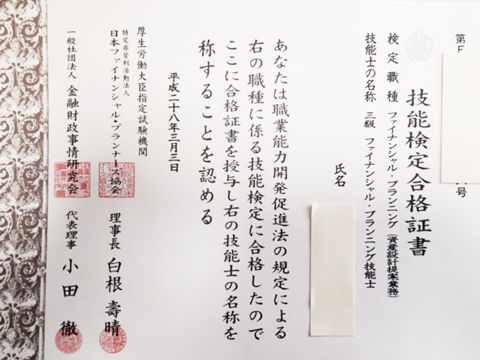 第F
号
技能検定合格証書
検定職種 ファイナンシャル・プランニング（資産設計提案業務）
技能士の名称 三級 ファイナンシャル・プランニング技能士
氏名
あなたは職業能力開発促進法の規定による
右の職種に係る技能検定に合格したので
ここに合格証書を授与し右の技能士の名称を
称することを認める
平成二十八年三月三日
厚生労働大臣指定試験機関
特定非営利活動法人
日本ファイナンシャル・プランナーズ協会 理事長 白根壽晴
一般社団法人 金融財政事情研究会 代表理事 小田徹